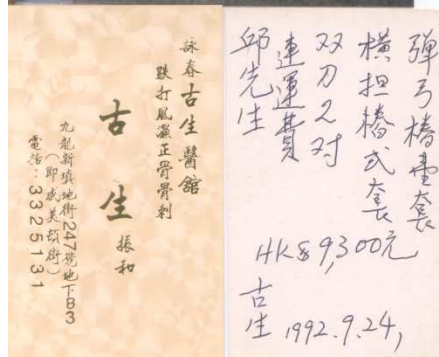 詠春古生醫舘
跌打風濕正骨骨刺
古生 振和
九龍新填地街247號地下B3
（即咸美頓街）
電話：3325131
弹弓樁壹套
橫担樁弍套
双刀2对
連運費
邱先生
HK$9,300元
古生 1992.9.24,